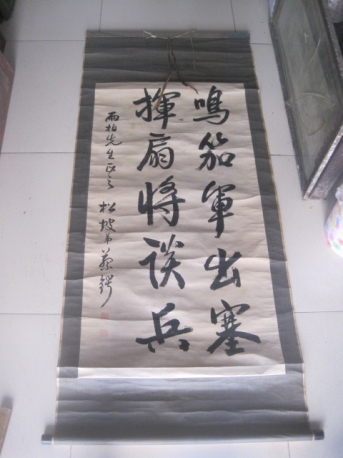 鳴笳軍出塞
揮扇将談兵
雨柏先生正之 松坡弟蔡鍔